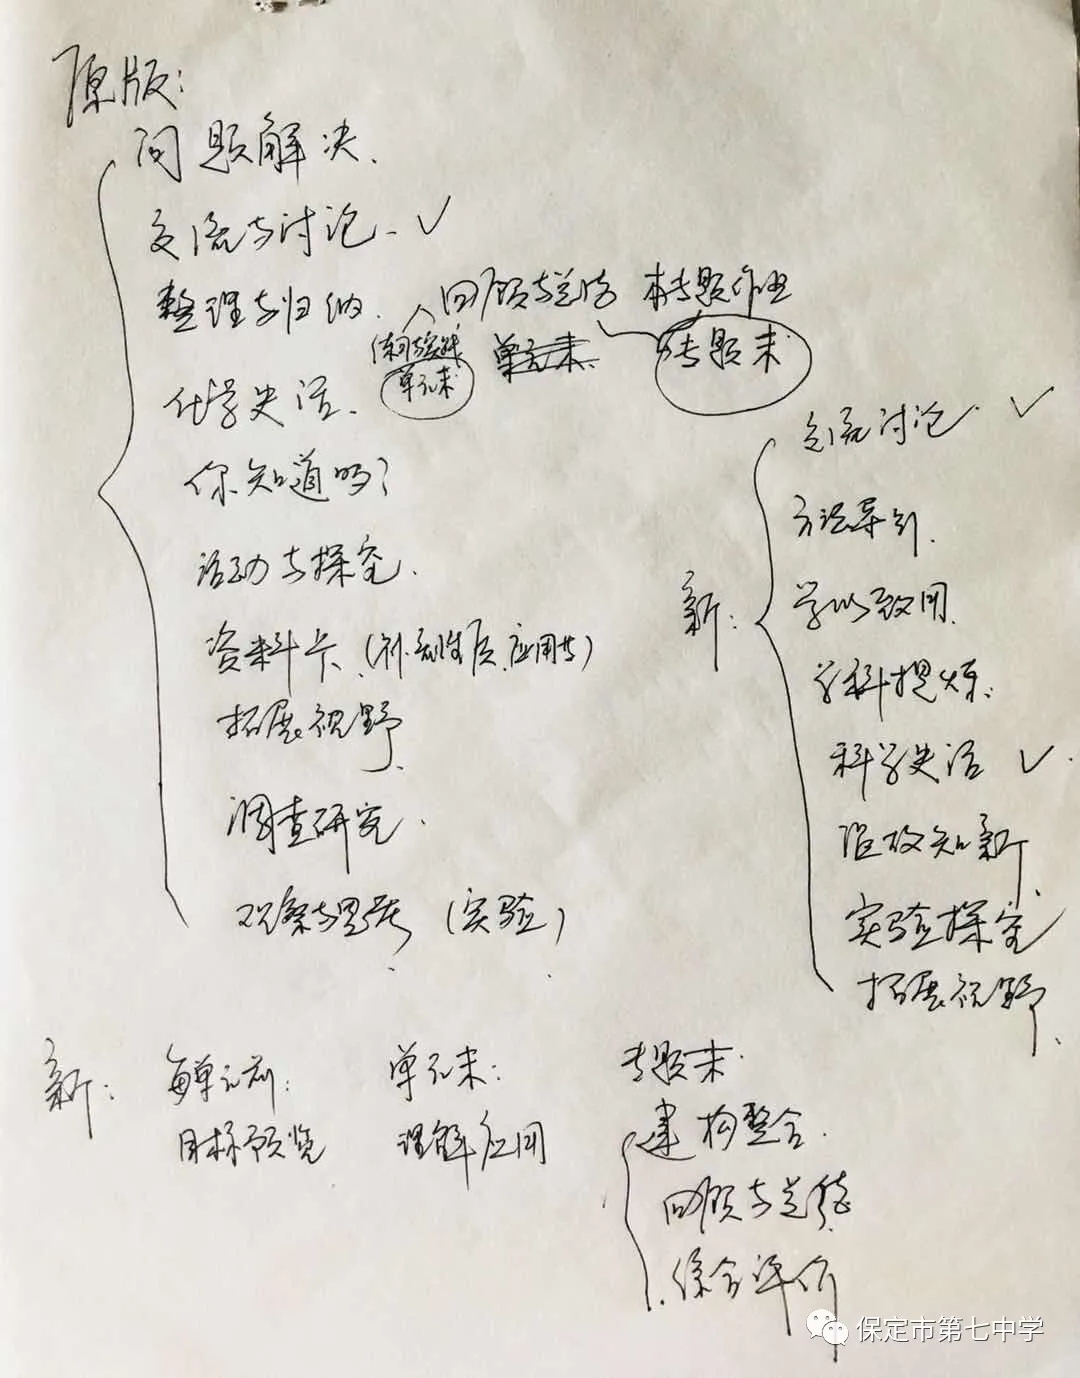 原版:
问题解决、
交流与讨论 - ✓
整理与归纳、 回顾与总结 本专题作业
练习与实践 单元末 专题末
单元末
化学史话、
你知道吗?
活动与探究、
资料卡、(补充性质、应用等)
拓展视野、
调查研究、
观察与思考 (实验)
新:
交流讨论 ✓
方法导引、
学以致用、
学科提炼、
科学史话 ✓
温故知新、
实验探究
拓展视野、
新: 每单元前: 单元末: 专题末:
目标预览 理解应用 建构整合、
回顾与总结
综合评价
保定市第七中学